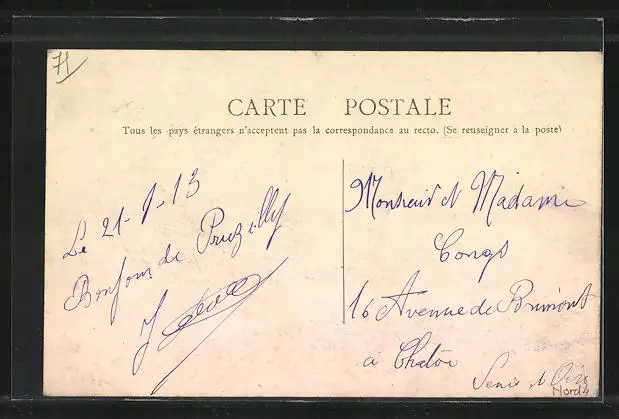 71
CARTE POSTALE
Tous les pays étrangers n'acceptent pas la correspondance au recto. (Se renseigner à la poste)
Le 21-9-13
Bonjour de Pruzilly
Monsieur et Madame
16 Avenue de Brimont
à Chatou
Seine et Oise
Nord4